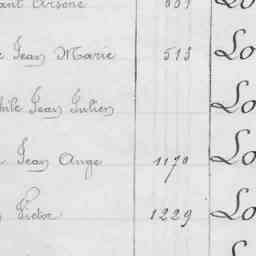 Arsène
Jean Marie 513 Lo
Jean Julien Lo
Jean Ange 1170 Lo
Victor 1229 Lo